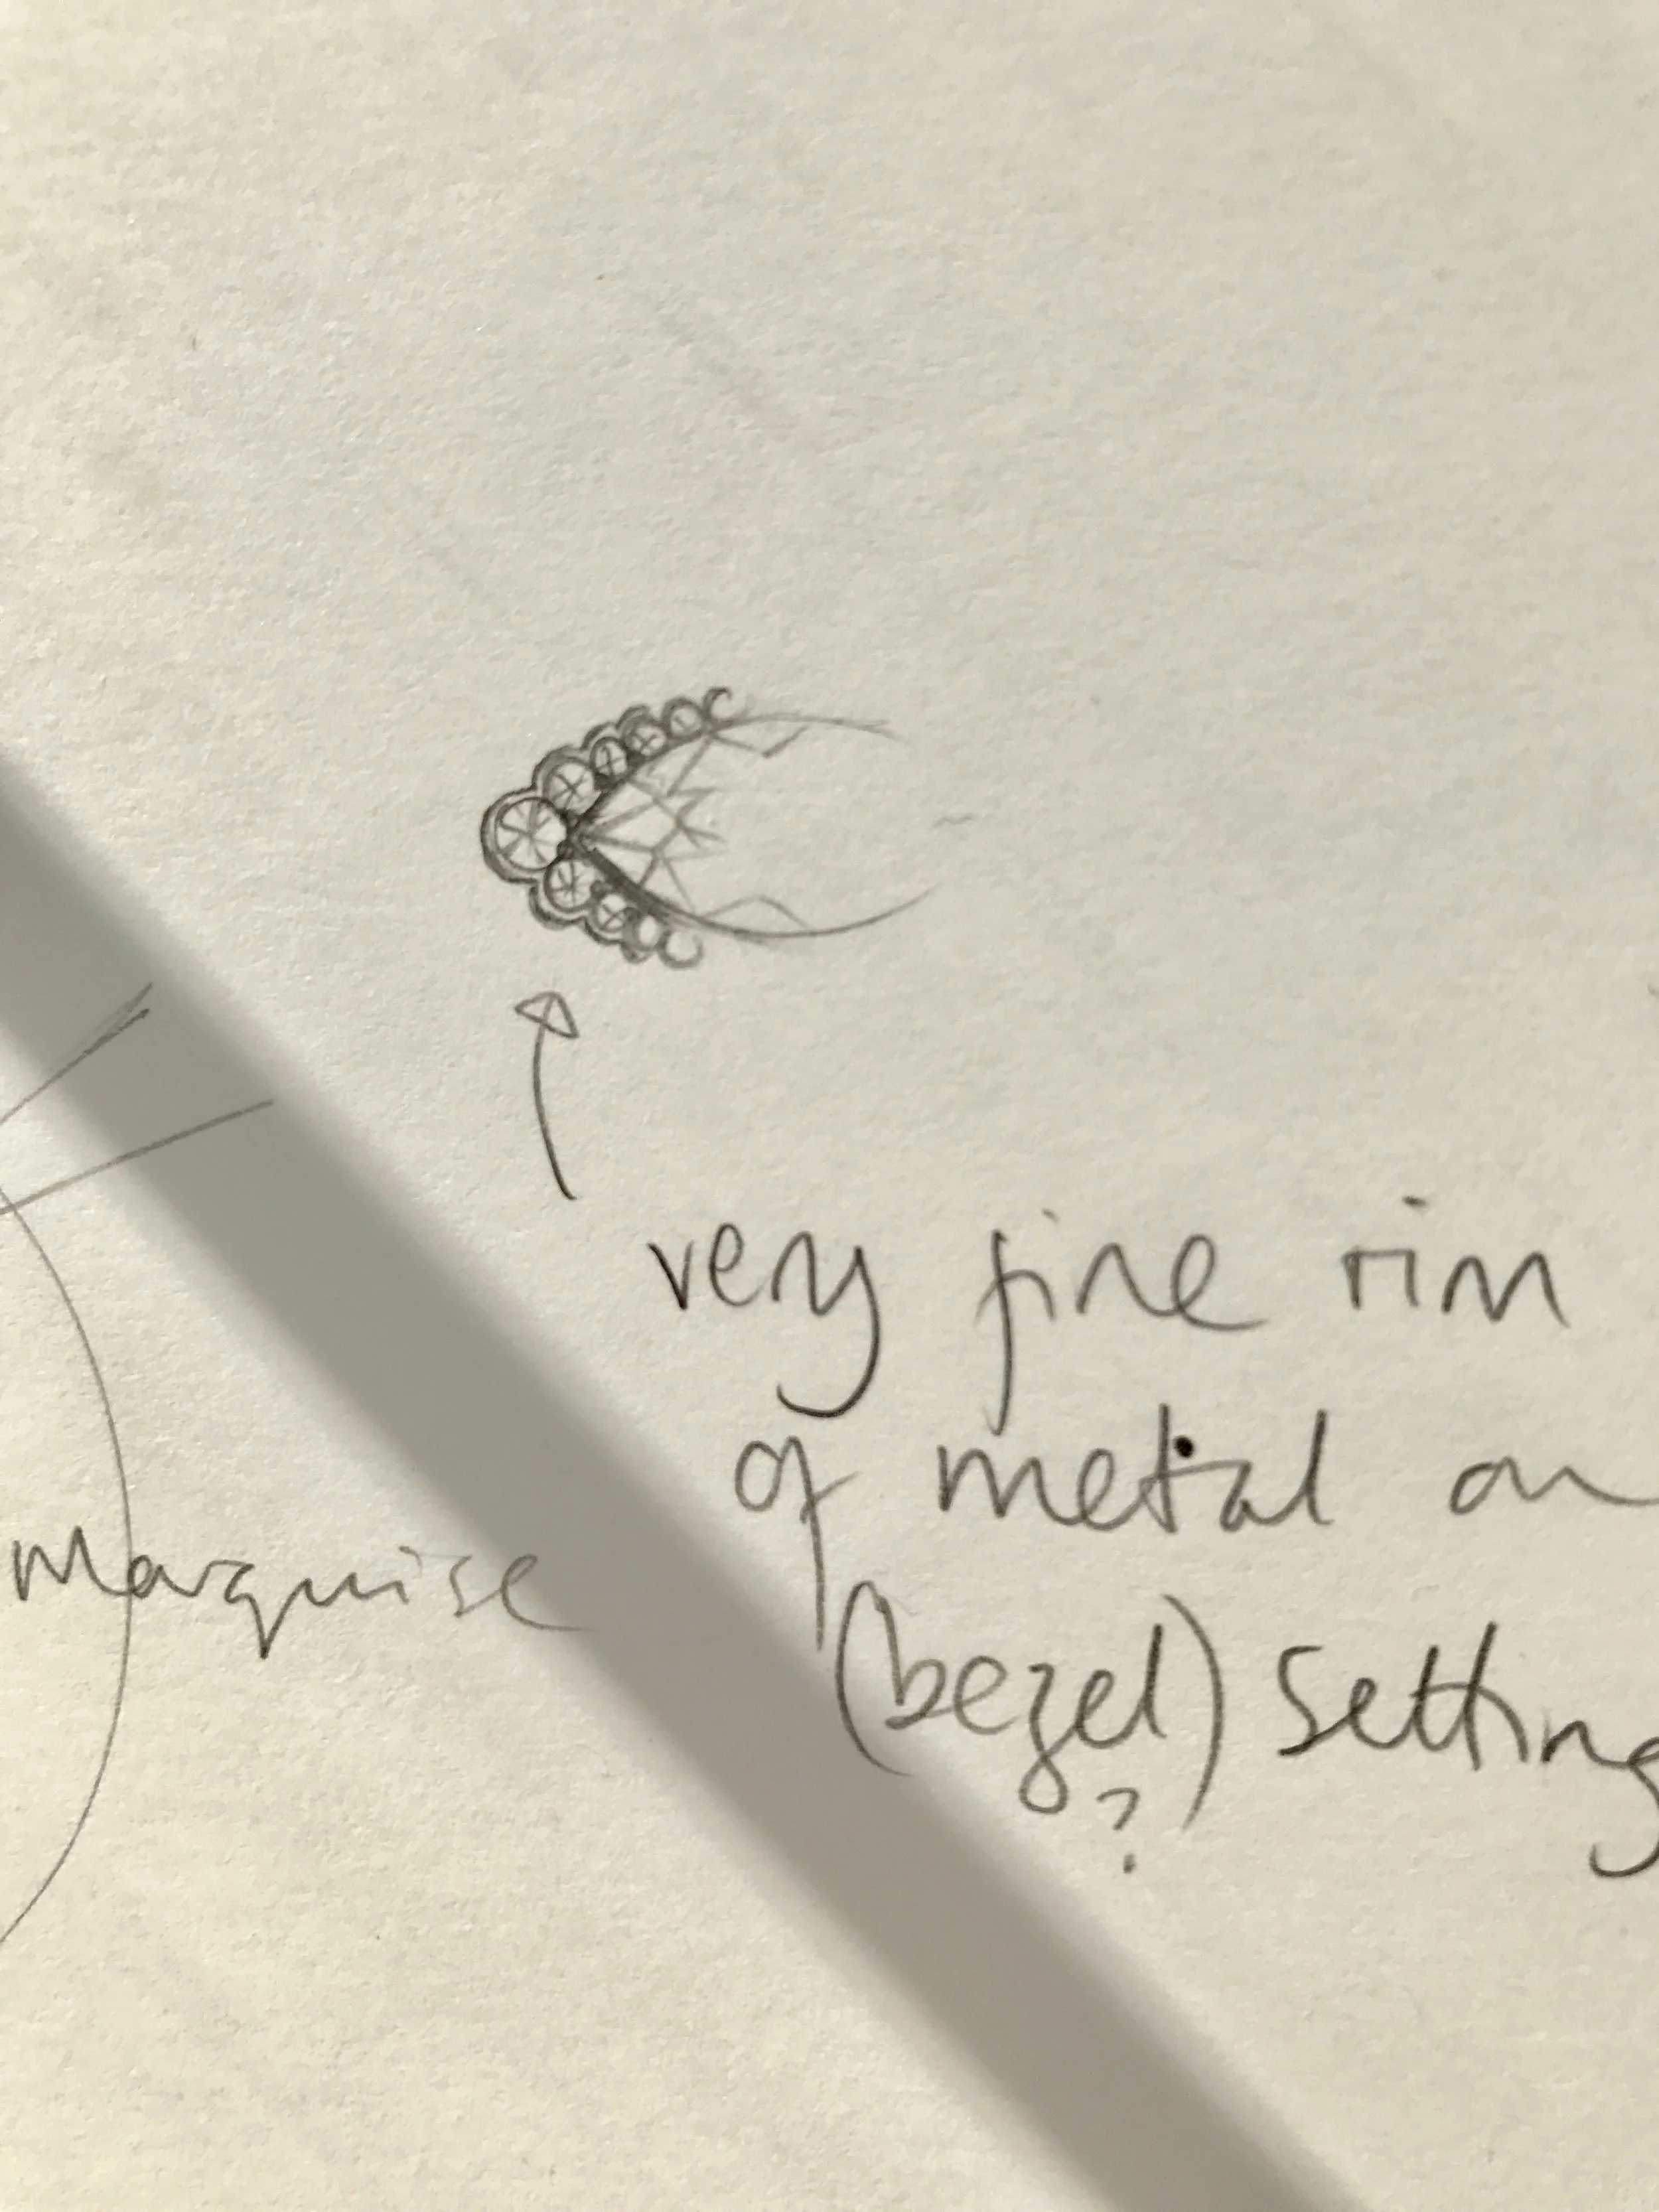 very fine rim
of metal on
marquise
(bezel) setting
?